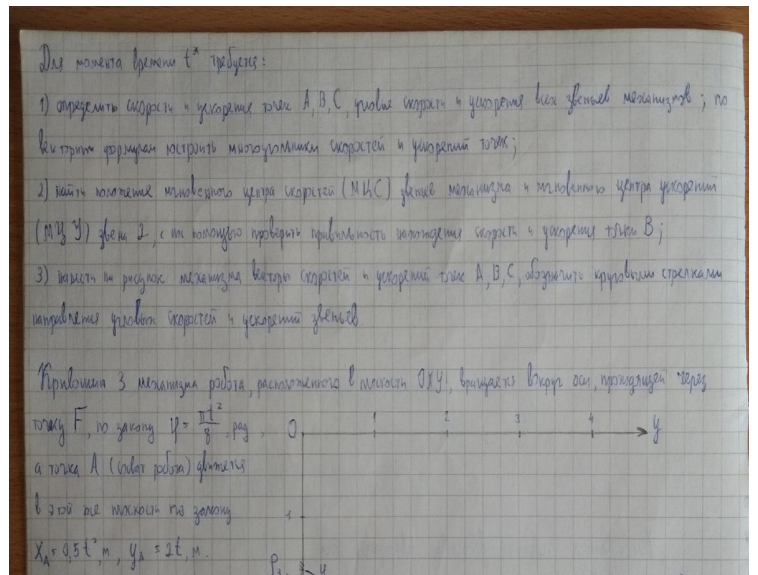 Для момента времени t* требуется:
1) определить скорости и ускорения точек A, B, C, угловые скорости и ускорения всех звеньев механизмов; по
векторным формулам построить многоугольники скоростей и ускорений точек;
2) найти положение мгновенного центра скоростей (МЦС) звеньев механизма и мгновенного центра ускорений
(МЦУ) звена 2, с их помощью проверить правильность нахождения скорости и ускорения точки B;
3) нанести на рисунок механизма векторы скоростей и ускорений точек A, B, C, обозначить круговыми стрелками
направления угловых скоростей и ускорений звеньев
Кривошип 3 механизма робота, расположенного в плоскости OXY, вращается вокруг оси, проходящей через
точку F, по закону φ = πt²/8, рад,
0 1 2 3 4 y
а точка A (схват робота) движется
в этой же плоскости по закону
1
X_A = 0,5t², м, y_A = 2t, м.